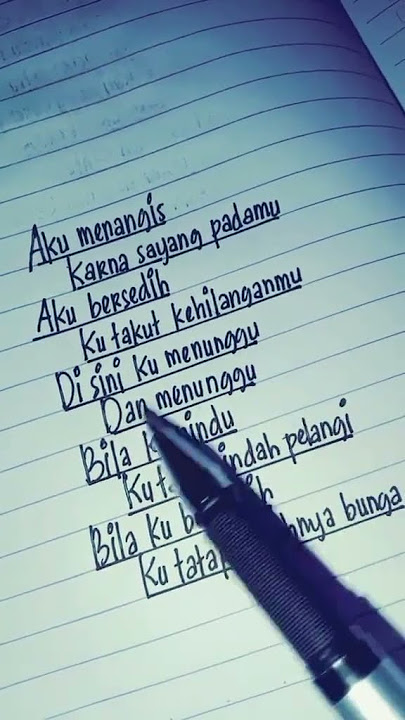 Aku menangis
Karna sayang padamu
Aku bersedih
Ku takut kehilanganmu
Di sini Ku menunggu
Dan menunggu
Bila
indah pelangi
Bila Ku
Ku tatap bunga